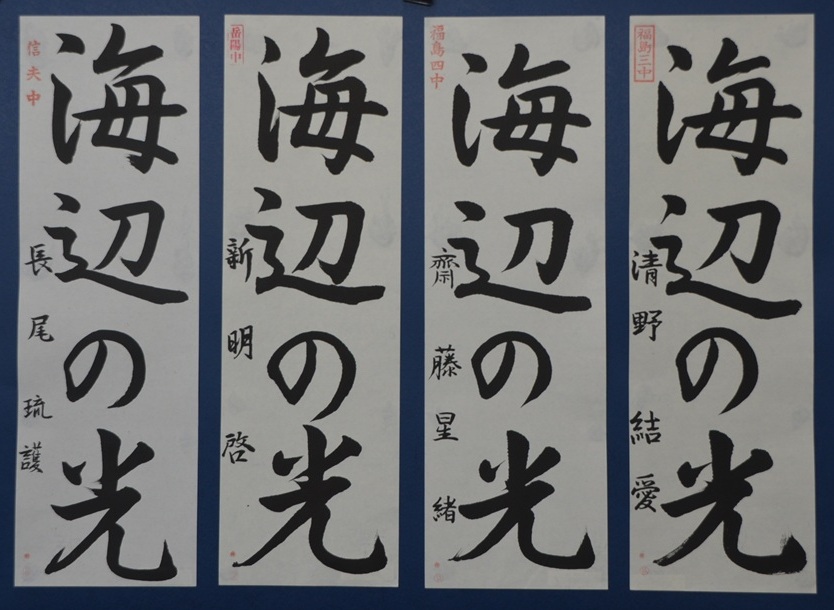 福島三中
海辺の光
清野結愛
福島四中
海辺の光
齋藤星緒
岳陽中
海辺の光
新明啓
信夫中
海辺の光
長尾琉護